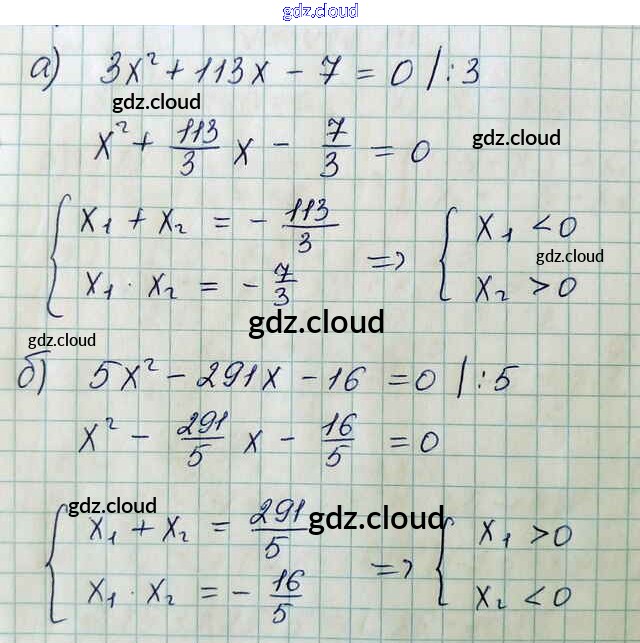 gdz.cloud
а) 3x² + 113x - 7 = 0 | : 3
gdz.cloud
x² + 113/3 x - 7/3 = 0
gdz.cloud
{ x₁ + x₂ = - 113/3
x₁ · x₂ = - 7/3
=> { x₁ < 0
gdz.cloud
x₂ > 0
gdz.cloud
gdz.cloud
б) 5x² - 291x - 16 = 0 | : 5
x² - 291/5 x - 16/5 = 0
gdz.cloud
{ x₁ + x₂ = 291/5
gdz.cloud
x₁ · x₂ = - 16/5
=> { x₁ > 0
x₂ < 0